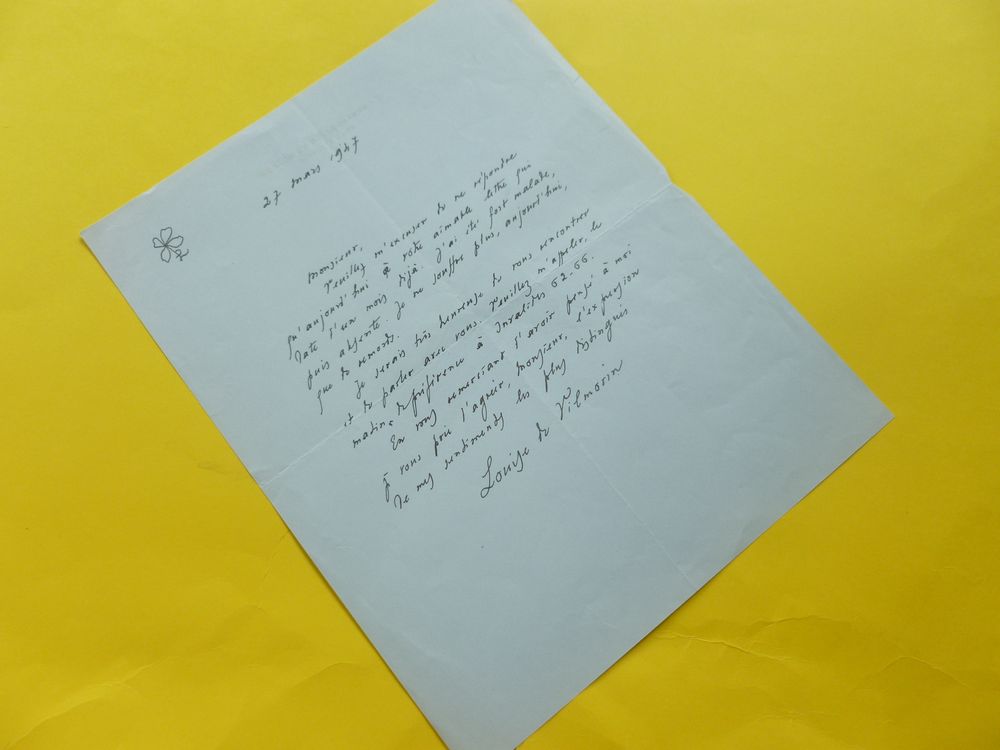 27 mars 1947
Monsieur,
Veuillez m'excuser de ne répondre
qu'aujourd'hui à votre aimable lettre qui
date d'un mois déjà. J'ai été fort malade,
puis absente. Je ne souffre plus, aujourd'hui,
que de remords.
Je serais très heureuse de vous rencontrer
et de parler avec vous. Veuillez m'appeler, le
matin de préférence à Invalides 62-66.
En vous remerciant d'avoir pensé à moi
je vous prie d'agréer, Monsieur, l'expression
de mes sentiments les plus distingués
Louise de Vilmorin